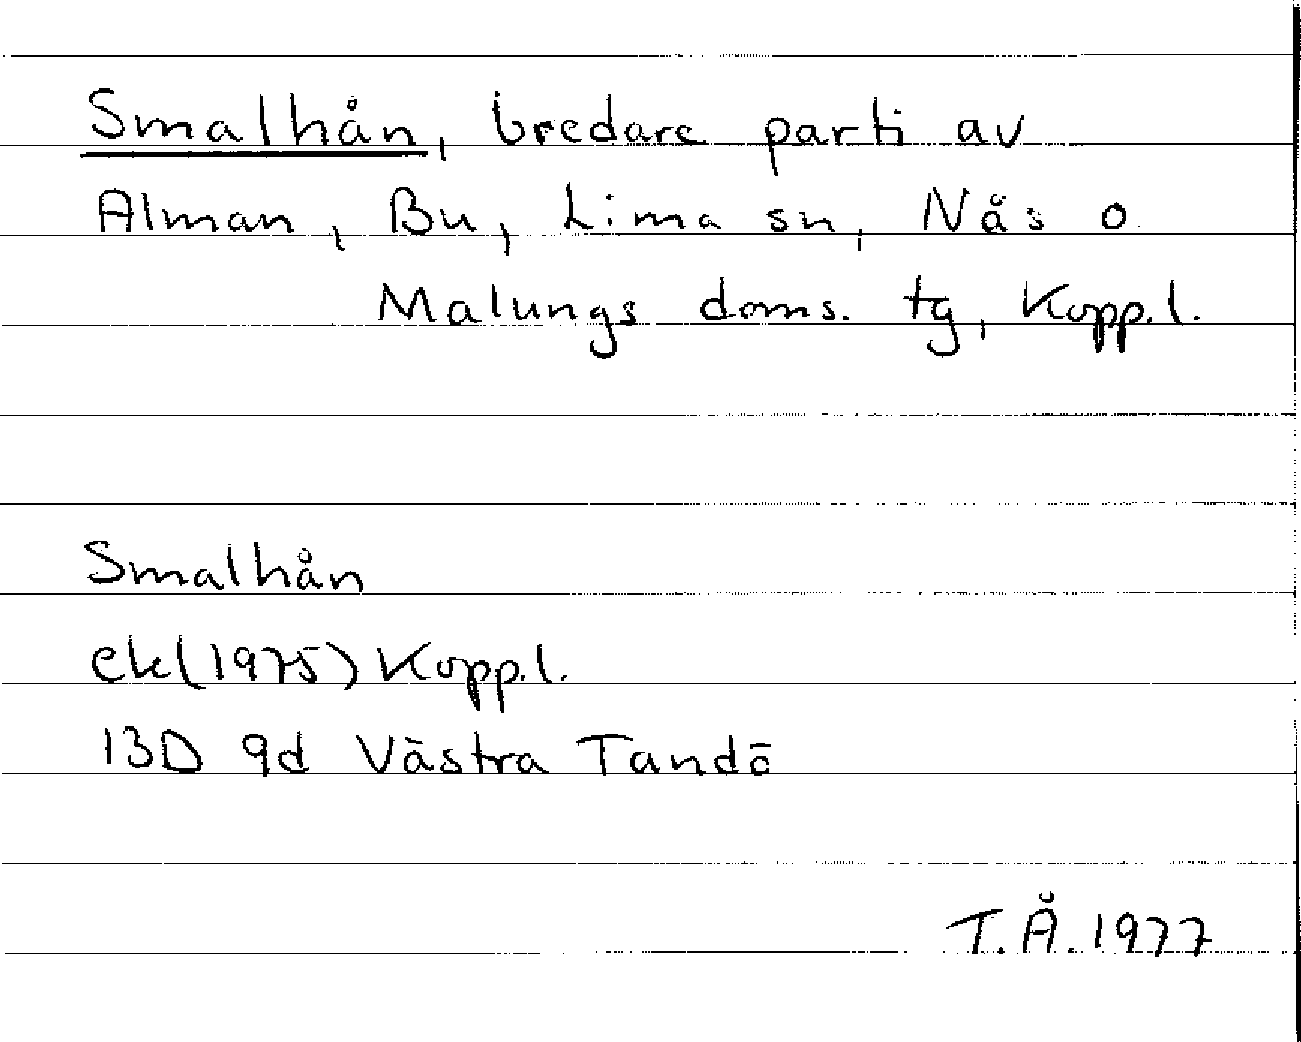 Smalhån, bredare parti av
Alman, Bu, Lima sn, Nås o
Malungs doms. tg, Kopp.l.
Smalhån
ek(1975) Kopp.l.
13D 9d Västra Tandö
T.Å.1977